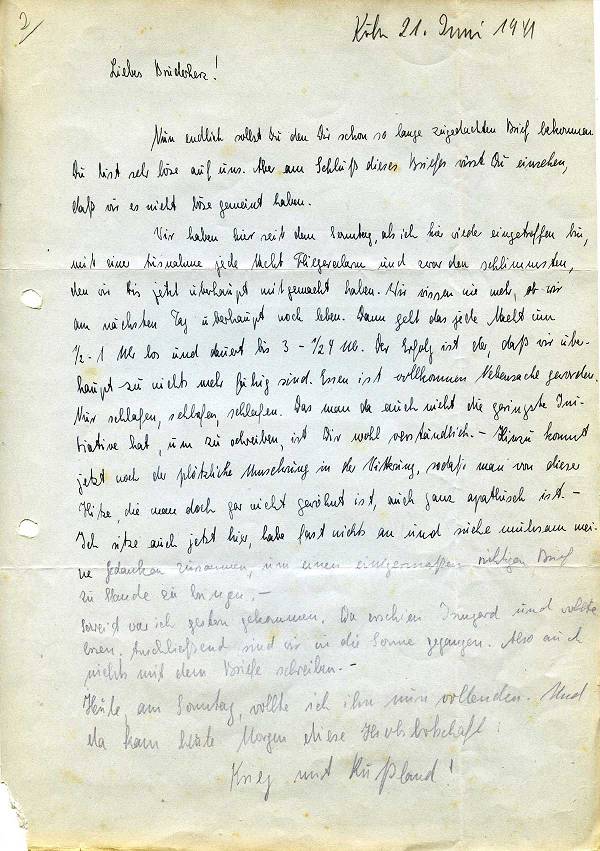 2/
Köln 21. Juni 1941
Liebes Bruderherz!
Nun endlich sollst Du den Dir schon so lange zugedachten Brief bekommen
Du bist sehr böse auf uns. Aber am Schluß dieses Briefes wirst Du einsehen,
daß wir es nicht böse gemeint haben.
Wir haben hier seit dem Sonntag, als ich hier wieder eingetroffen bin,
mit eine Ausnahme jede Nacht Fliegeralarm und zwar den schlimmsten,
den wir bis jetzt überhaupt mitgemacht haben. Wir wissen nie mehr, ob wir
am nächsten Tag überhaupt noch leben. Dann geht das jede Nacht um
1/2 - 1 Uhr los und dauert bis 3 - 1/24 Uhr. Der Erfolg ist der, daß wir über-
haupt zu nichts mehr fähig sind. Essen ist vollkommen Nebensache geworden.
Nur schlafen, schlafen, schlafen. Das man da auch nicht die geringste Ini-
tiative hat, um zu schreiben, ist Dir wohl verständlich. - Hinzu kommt
jetzt noch der plötzliche Umschwung in der Witterung, sodaß man von dieser
Hitze, die man doch gar nicht gewöhnt ist, auch ganz apathisch ist. -
Ich sitze auch jetzt hier, habe fast nichts an und suche mühsam mei-
ne Gedanken zusammen, um einen einigermaßen richtigen Brief
zu Stande zu bringen. -
Soweit war ich gestern gekommen. Da erschien Irmgard und wollte
essen. Anschließend sind wir in die Sonne gegangen. Also auch
nichts mit dem Briefe schreiben. -
Heute, am Sonntag, wollte ich ihn nun vollenden. Und
da kam heute Morgen diese Hiobsbotschaft:
Krieg mit Rußland!